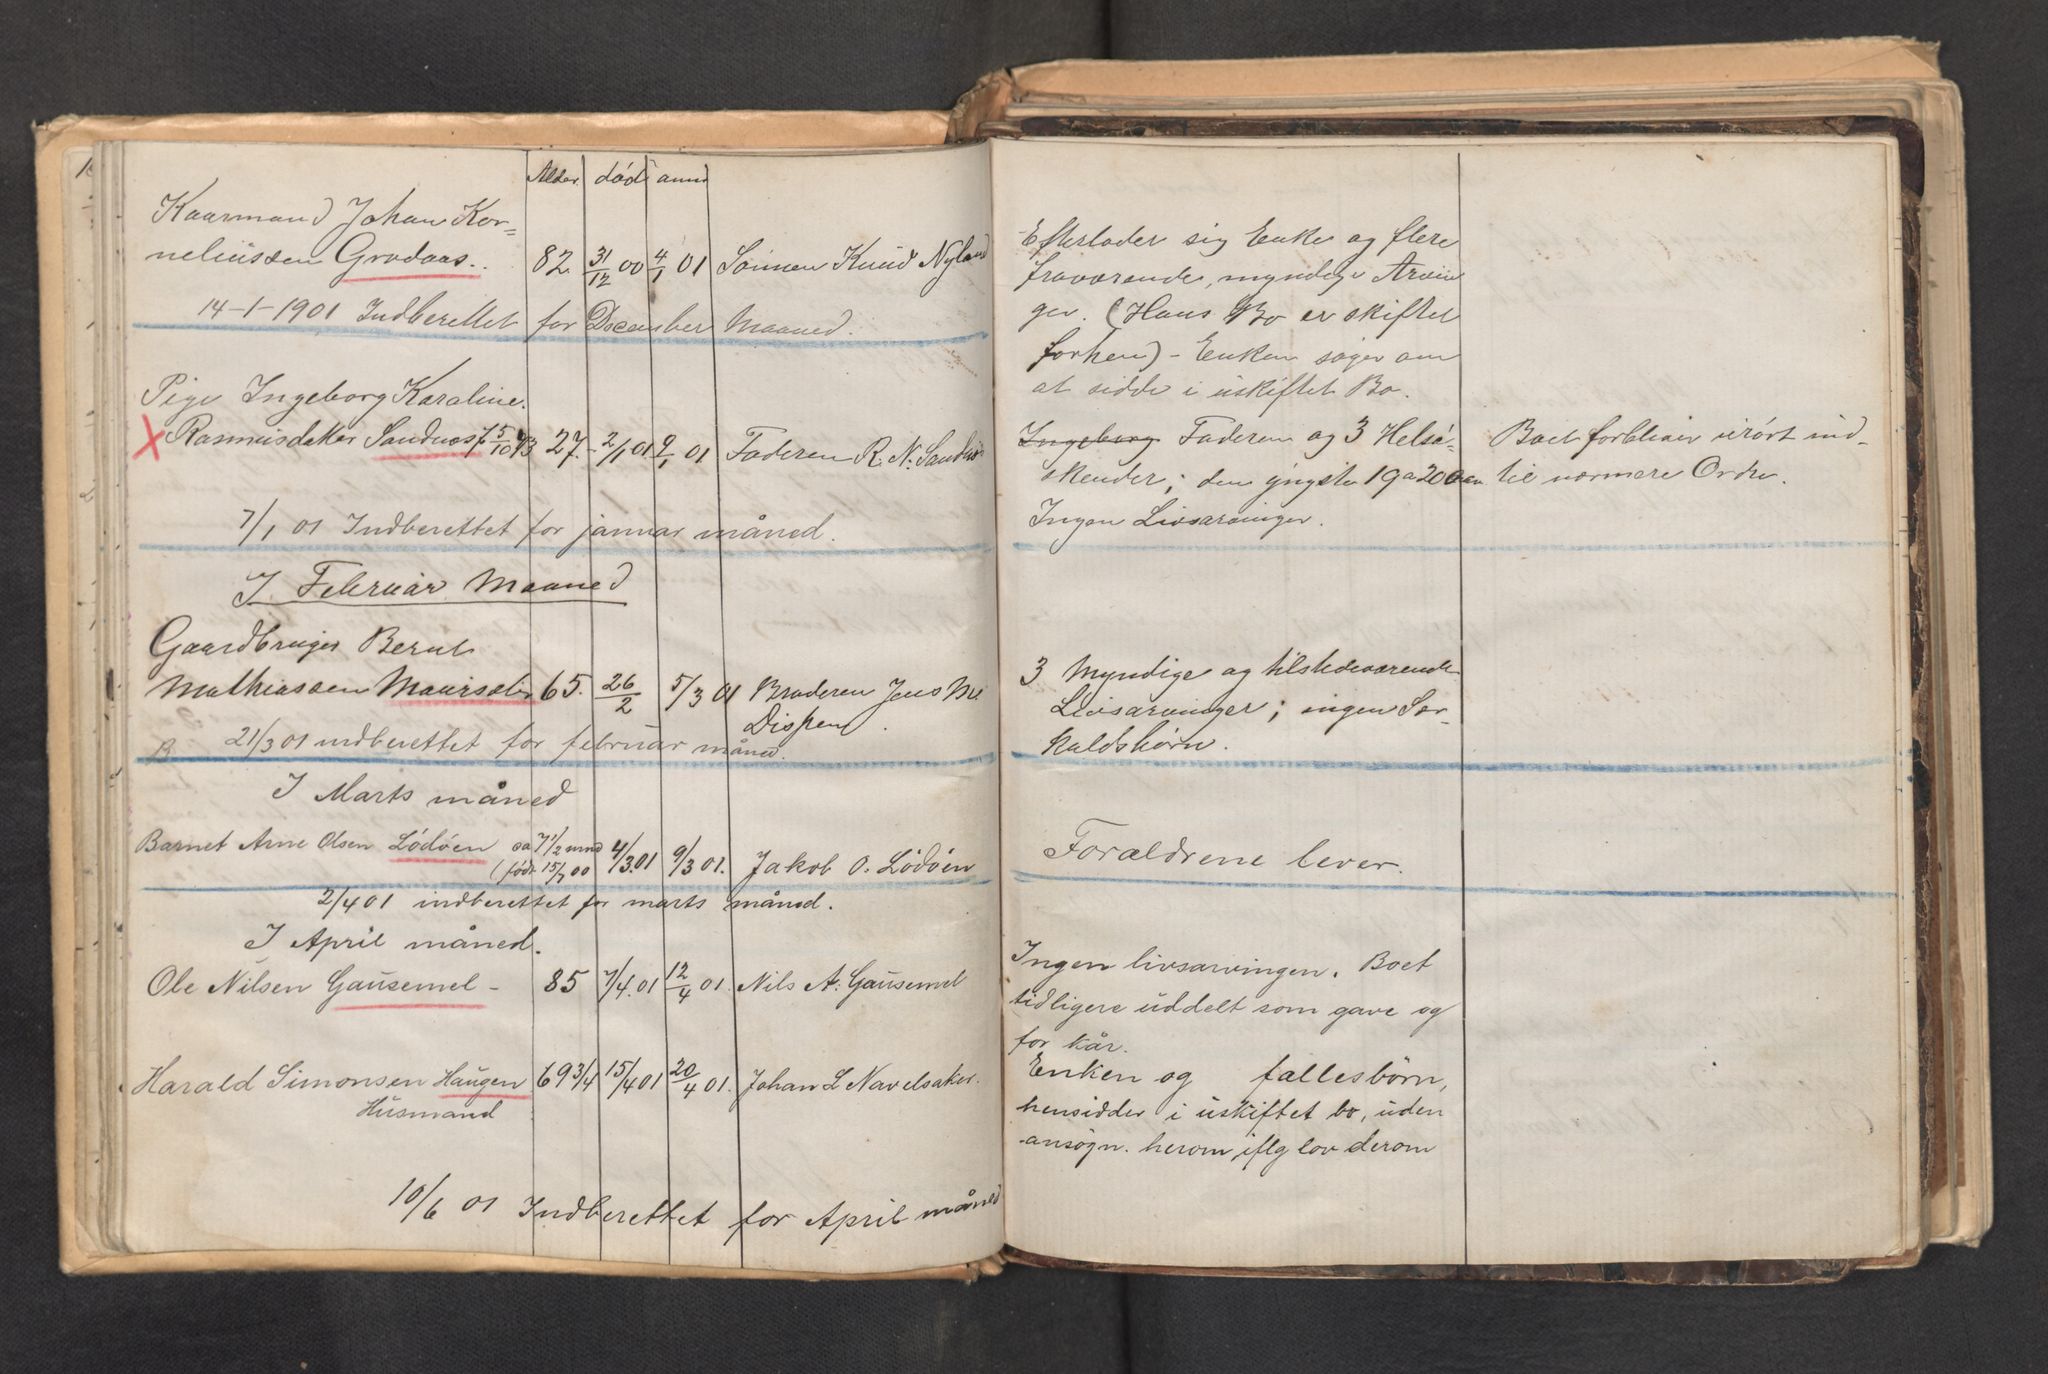 Alder. død anm
Kaarmand Johan Kor=
neliussen Grodaas. 82. 31/12 00 4/1 01 Sønnen Knud Nyland
14-1-1901 Indberettet for December Maaned.
Pige Ingeborg Karoline
X Rasmusdatter Sandnes f 5/10 73 27. 2/1 01 9/1 01 Faderen R. N. Sandnes
7/1 01 Indberettet for januar måned.
I Februar Maaned
Gaardbruger Bernt
Mathiassen Maurset 65. 26/2 5/3 01 Broderen Jens M.
Dispen.
B 21/3 01 indberettet for februar måned.
I Marts måned
Barnet Arne Olsen Lødøen ca 7 1/2 mnd 4/3 01 9/3 01. Jakob O. Lødøen
(født 15/7 00
2/4 01 indberettet for marts måned.
I April måned.
Ole Nilsen Gausemel - 85 7/4. 01 12/4 01. Nils A. Gausemel
Harald Simonsen Haugen 69 3/4 15/4 01 20/4 01. Johan L Navelsaker.
Husmand
10/6 01 Indberettet for April måned
Efterlader sig Enke og flere
fraværende, myndige Arvin
ger. (Hans Bo er skiftet
forhen) - Enken søger om
at sidde i uskiftet Bo.
Ingeborg Faderen og 3 Helsø-
skender; den yngste 19 a 20 Aar
Ingen Livsarvinger.
Boet forbliver urørt ind-
til nærmere Ordre.
3 Myndige og tilstedeværende
Livsarvinger; ingen Sær-
kuldsbørn.
Forældrene lever.
Ingen livsarvingen. Boet
tidligere uddelt som gave og
for kår.
Enken og fællesbørn,
hensidder i uskiftet bo, uden
ansøgn. herom, iflg lov derom